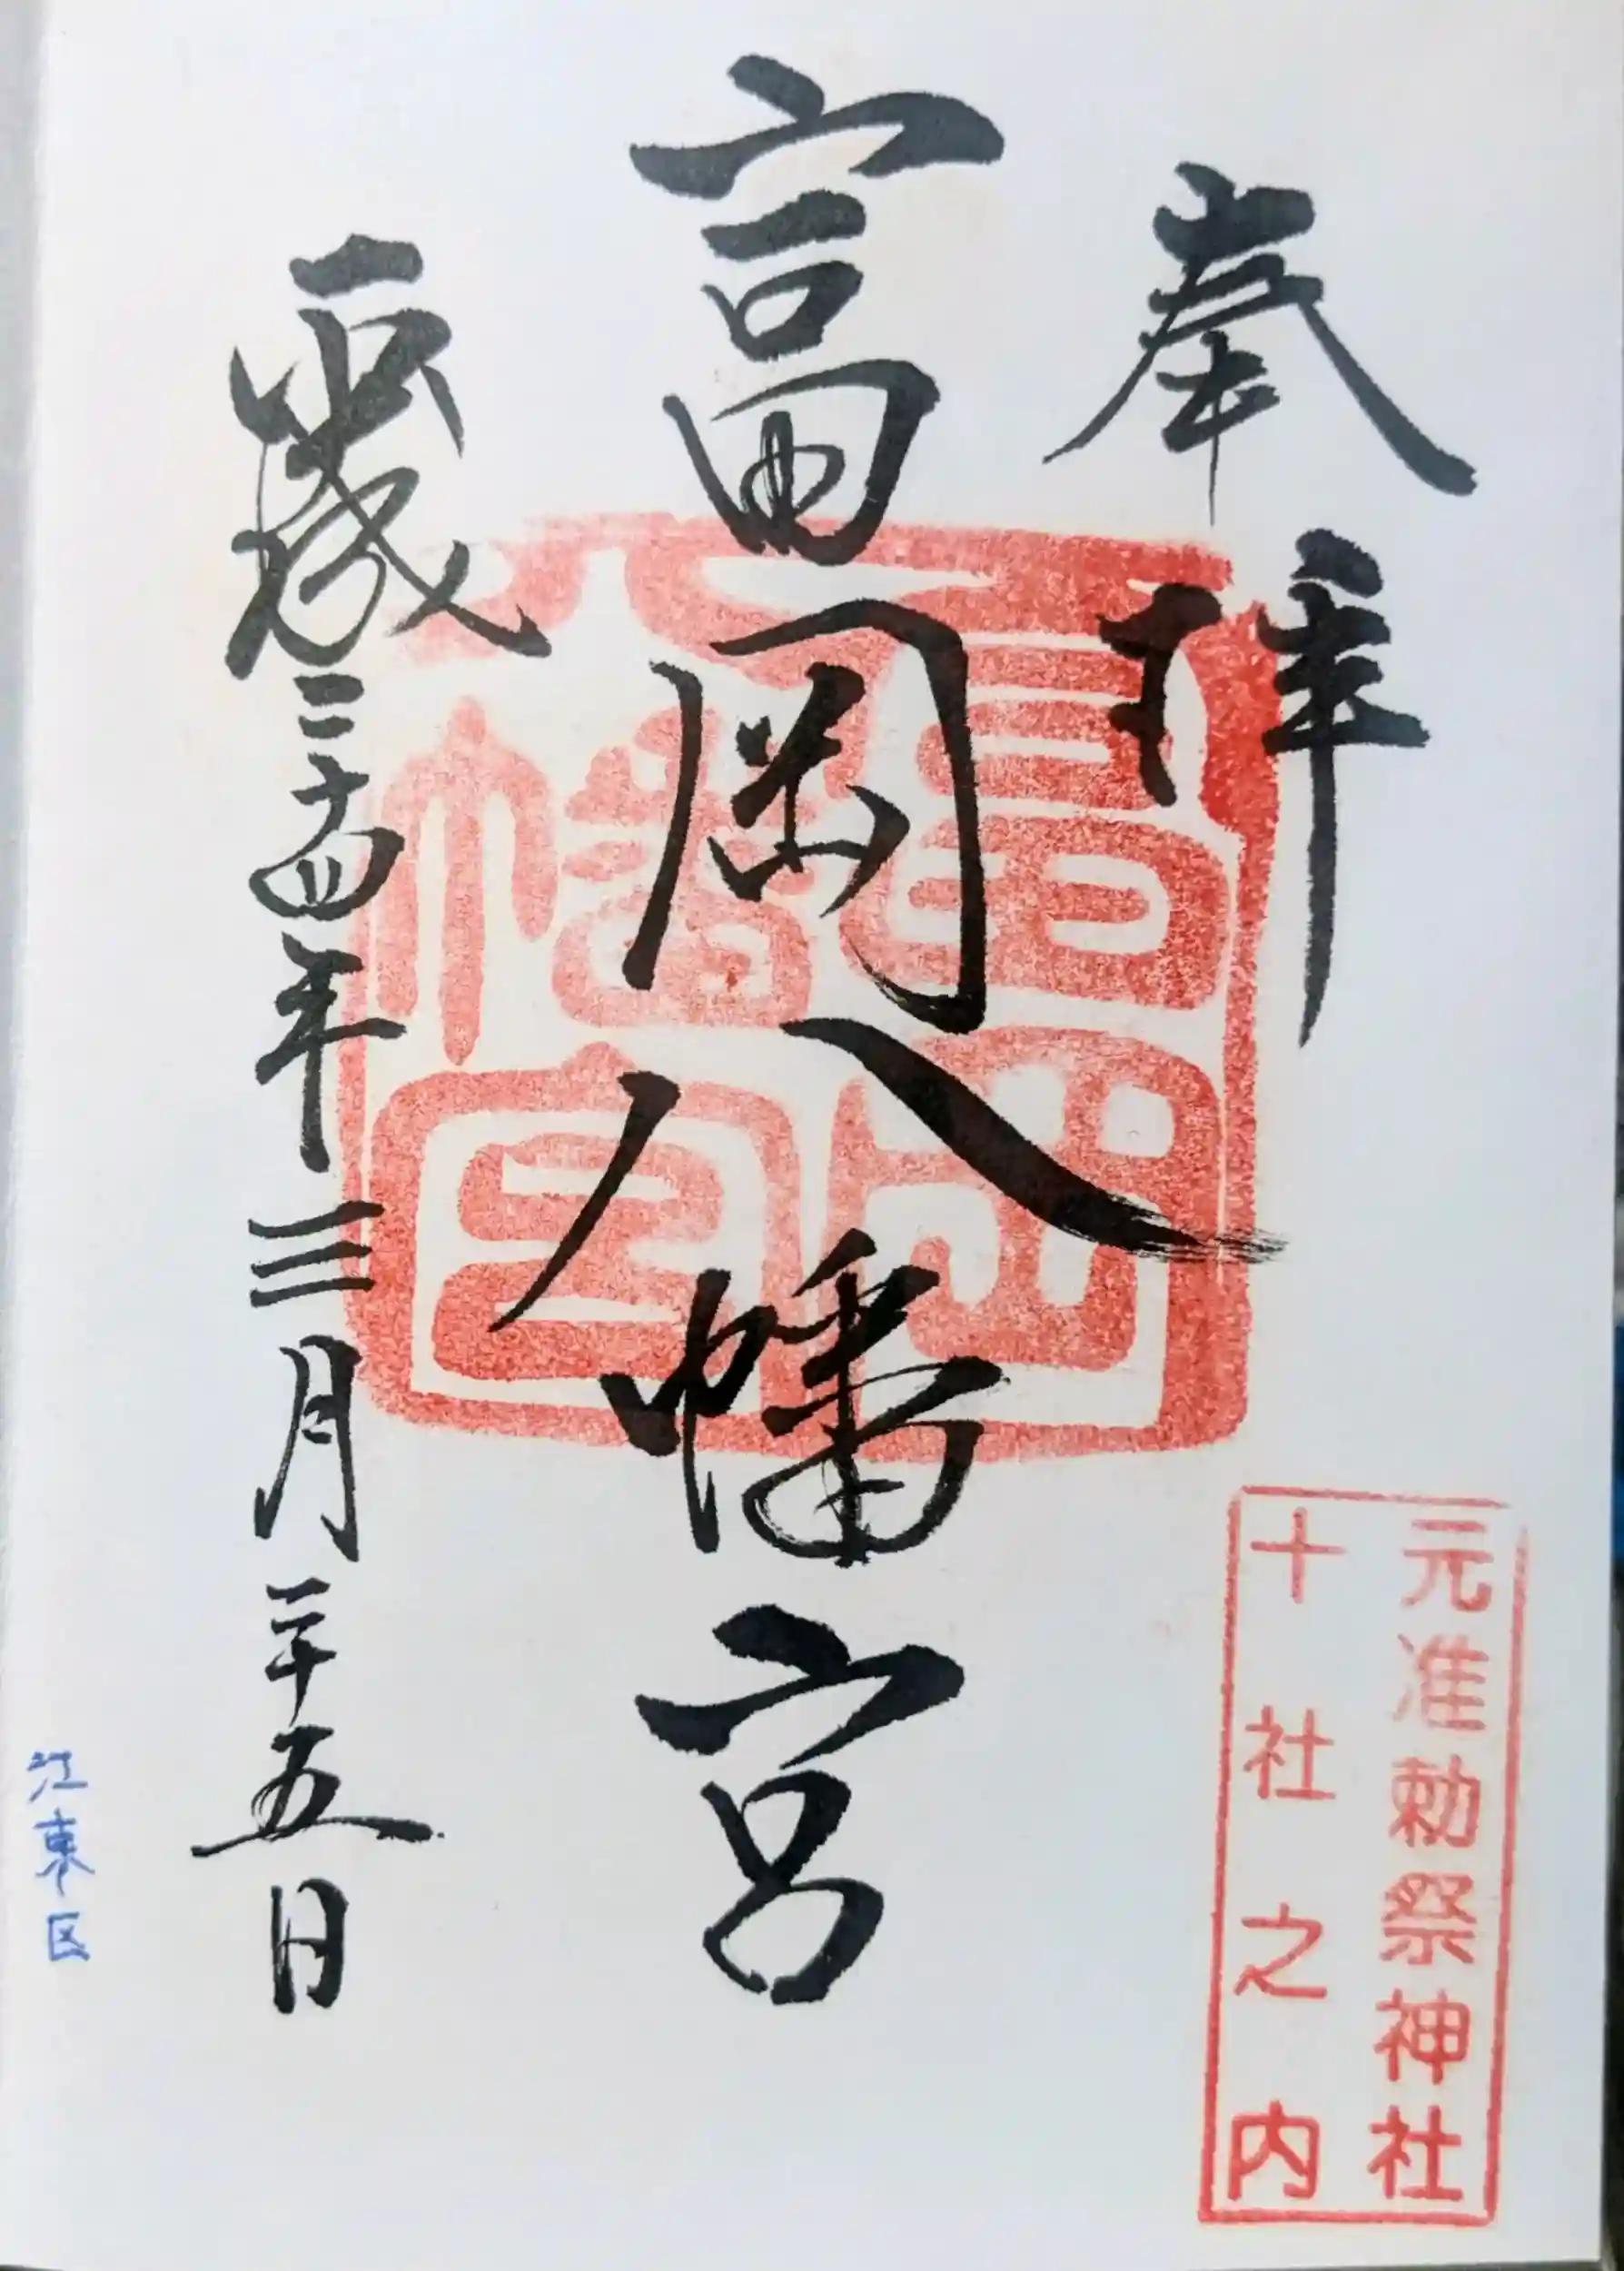 奉拝
富岡八幡宮
富岡八幡宮
平成二十四年三月二十五日
元准勅祭神社
十社之内
江東区